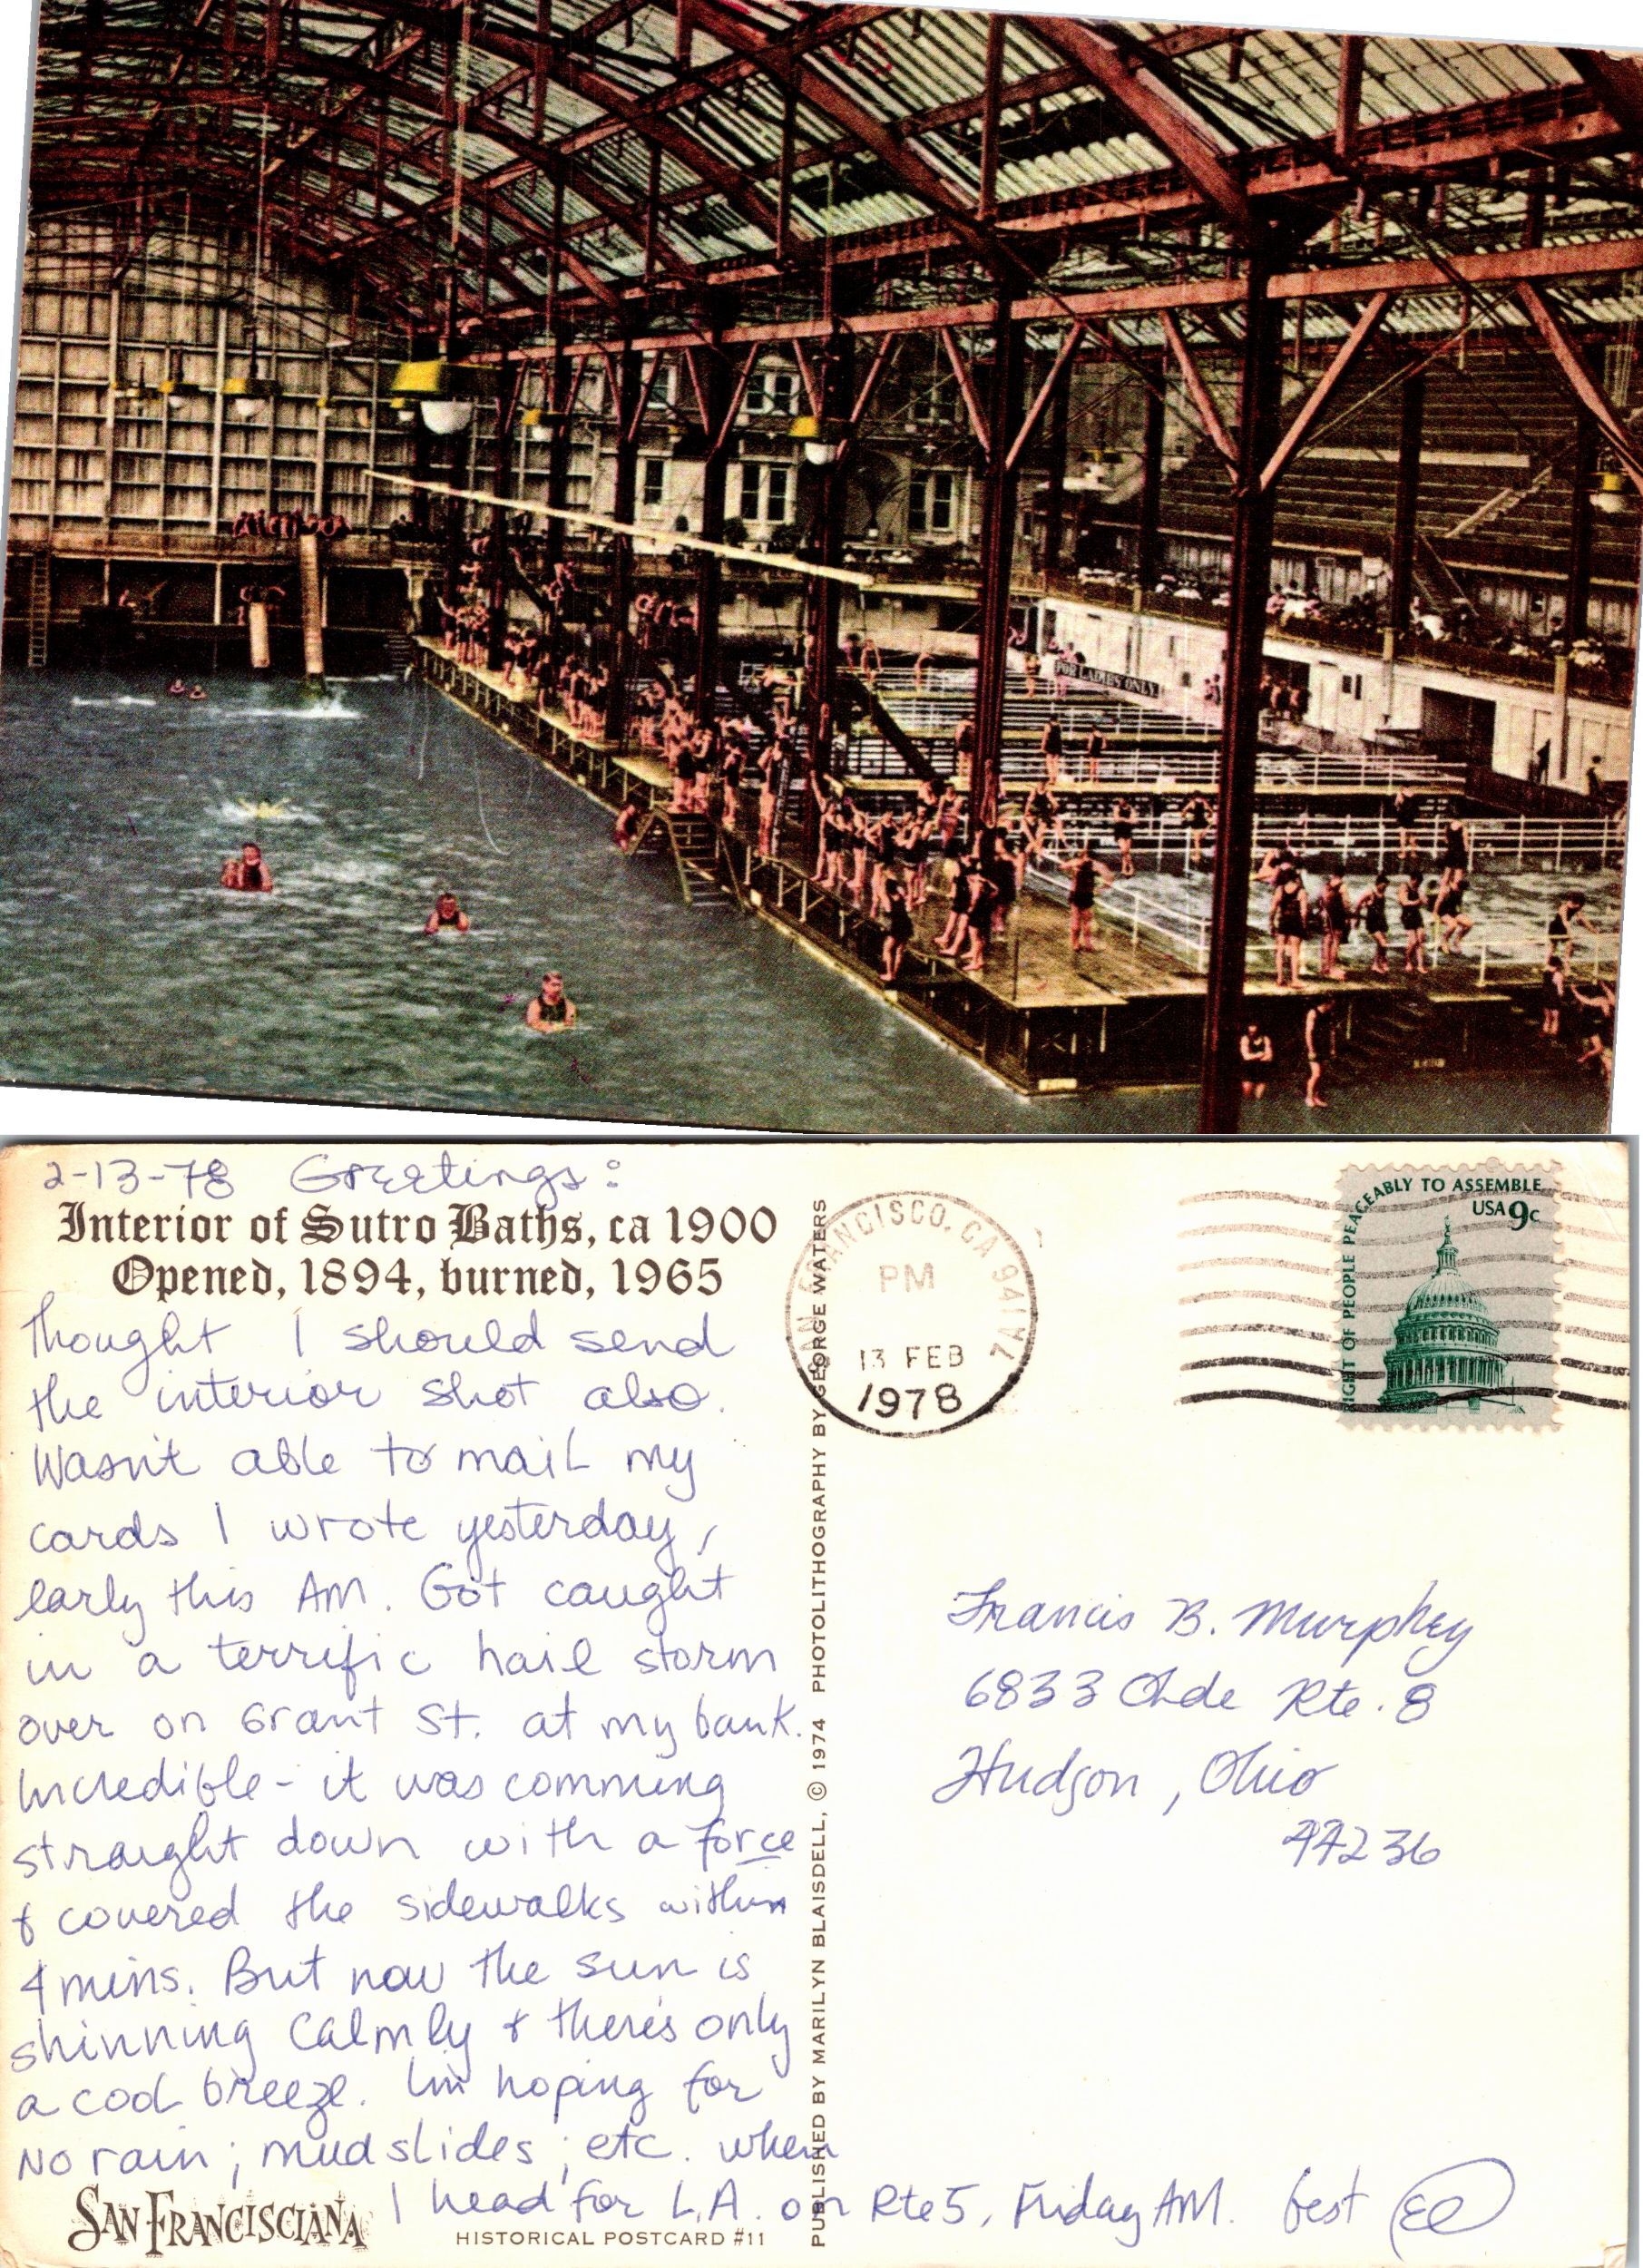 FOR LADIES ONLY
2-13-78 Greetings:
Interior of Sutro Baths, ca 1900
Opened, 1894, burned, 1965
Thought I should send
the interior shot also.
Wasn't able to mail my
cards I wrote yesterday,
early this AM. Got caught
in a terrific hail storm
over on Grant St. at my bank.
Incredible - it was comming
straight down with a force
& covered the sidewalks within
4 mins. But now the sun is
shinning calmly & there's only
a cool breeze. I'm hoping for
NO rain; mudslides; etc. when
I head for L.A. on Rte 5, Friday AM. best
SAN FRANCISCIANA
HISTORICAL POSTCARD #11
PUBLISHED BY MARILYN BLAISDELL, © 1974 PHOTOLITHOGRAPHY BY GEORGE WATERS
SAN FRANCISCO, CA 941
PM
13 FEB
1978
RIGHT OF PEOPLE PEACEABLY TO ASSEMBLE
USA 9c
Francis B. Murphey
6833 Olde Rte. 8
Hudson, Ohio
44236